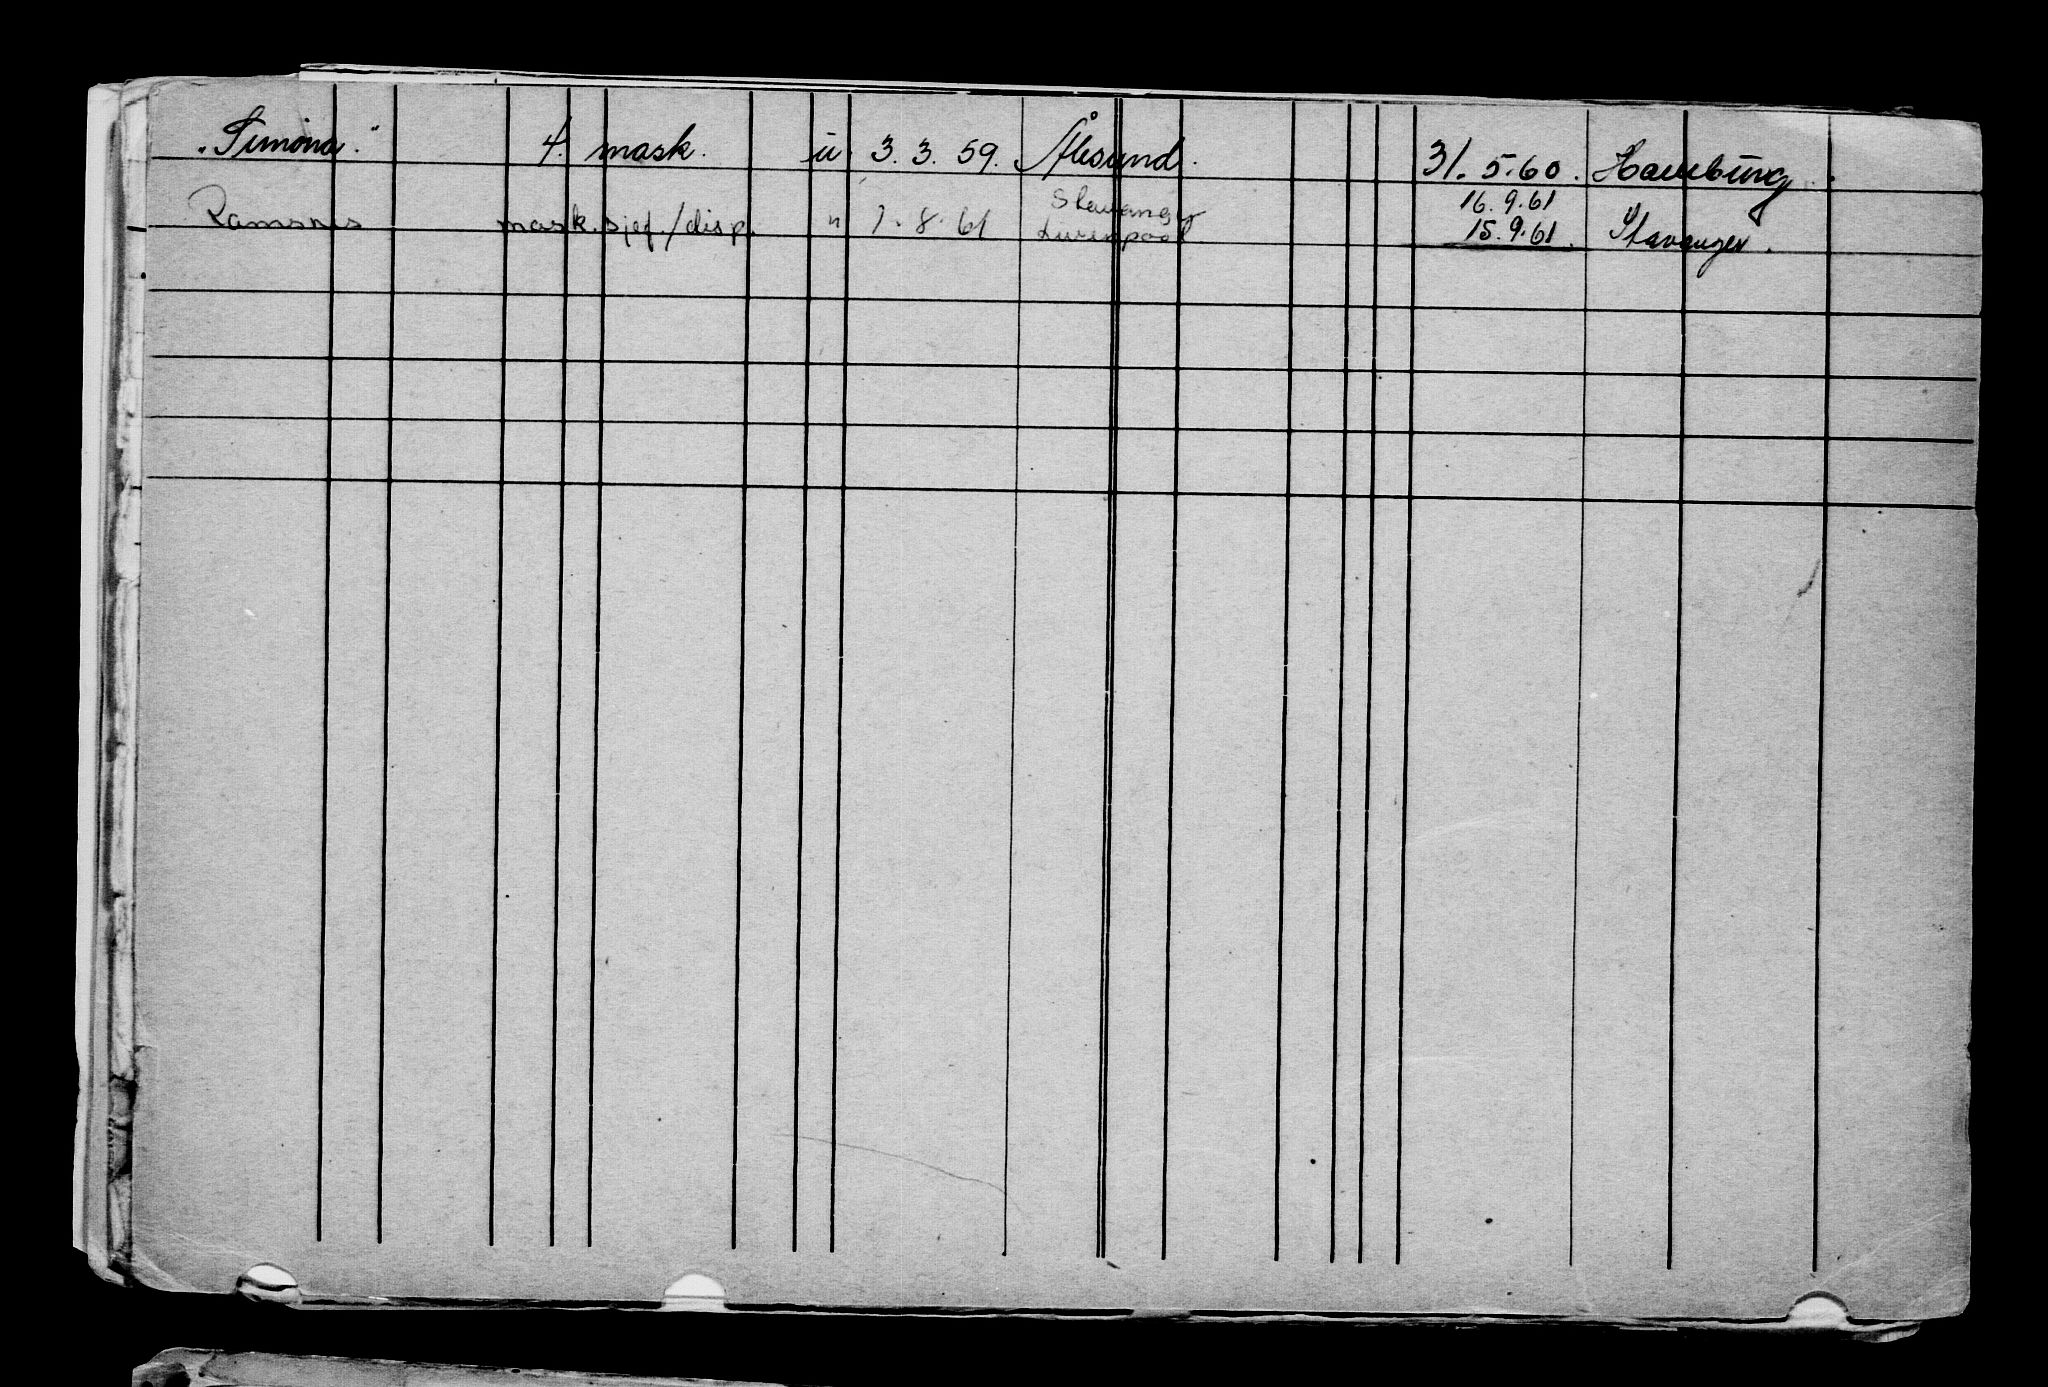 "Simona". 4. mask. u 3. 3. 59. Ålesund. 31. 5.60. Hamburg.
Stavanger 16.9.61
Ramsnes mask.sjef./disp. " 1. 8. 61 Liverpool 15.9.61. Stavanger.